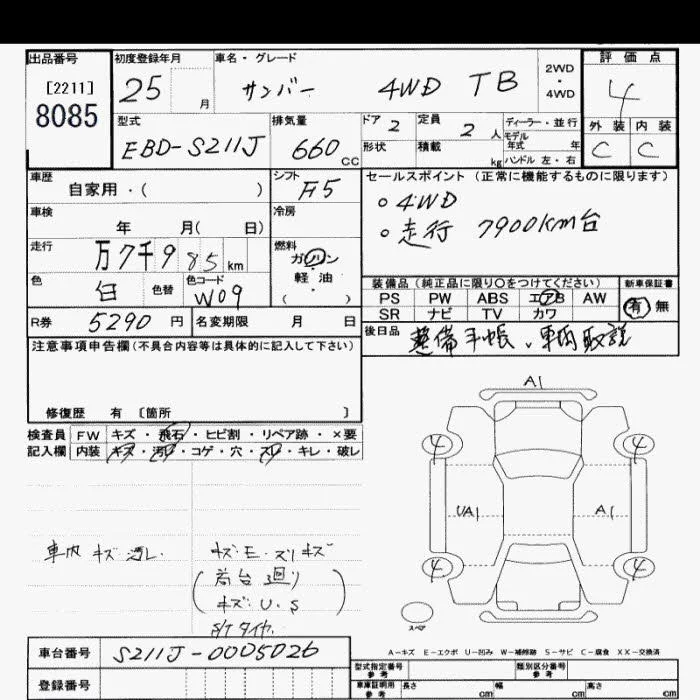 出品番号 初度登録年月 車名・グレード 評価点
[2211] 8085 25 月 サンバー 4WD TB 2WD・4WD 4
型式 排気量 ドア 2 定員 2人 ディーラー・並行 外装 内装
EBD-S211J 660cc 形状 積載 kg モデル年式 年 C C
ハンドル 左・右
車歴 シフト セールスポイント (正常に機能するものに限ります)
自家用・( ) F5 ○4WD
車検 年 月( 日) 冷房 ○走行 7900km台
走行 万7千985km 燃料 ガソリン・軽油 ( )
色 白 色替 色コード W09
装備品 (純正品に限り○をつけてください) 新車保証書
PS PW ABS エアB AW 有 無
SR ナビ TV カワ
R券 5290円 名変期限 月 日
後日品 整備手帳、車両取説
注意事項申告欄(不具合内容等は具体的に記入して下さい)
修復歴 有 〔箇所 〕
検査員 FW キズ・飛石・ヒビ割・リペア跡・×要
記入欄 内装 キズ・汚レ・コゲ・穴・スレ・キレ・破レ
A1
4 4
UA1 A1
4 4
スペア
車内 キズ 汚レ. キズ・E・スリキズ
荷台廻り
キズ・U・S
A-キズ E-エクボ U-凹み W-補修跡 S-サビ C-腐食 XX-交換済
車台番号 S211J-0005026
登録番号
型式指定番号 参考 類別区分番号 参考
車庫証明用 参考 長さ cm 幅 cm 高さ cm